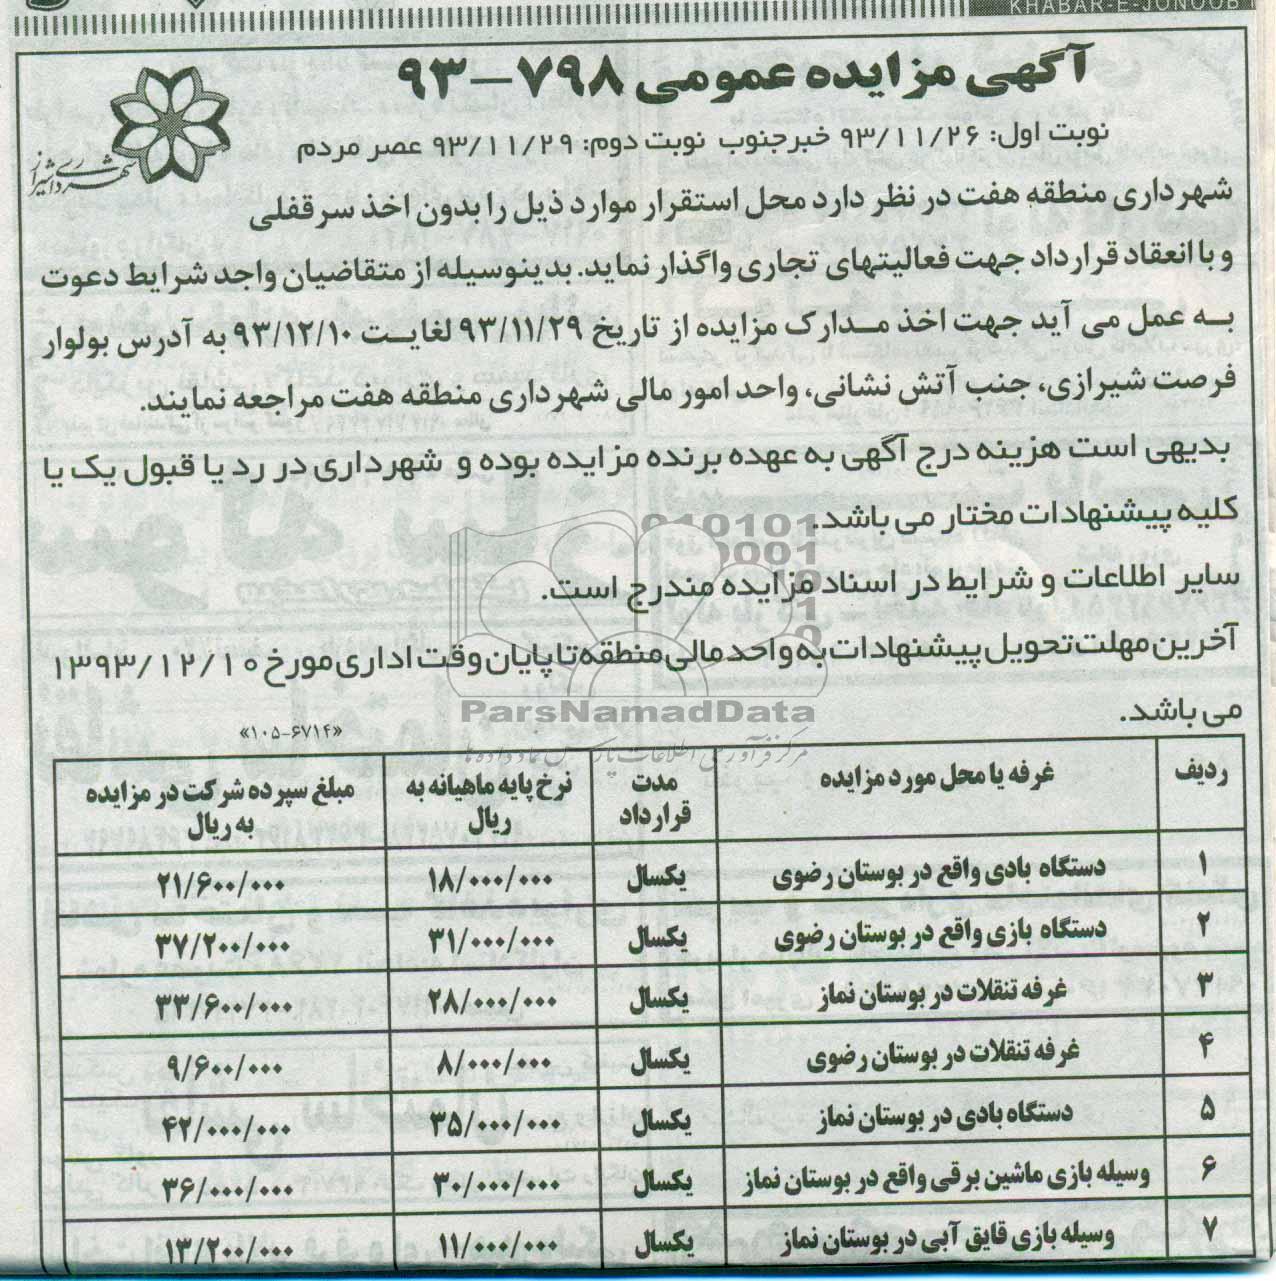 KHABAR-E-JONOOB
آگهی مزایده عمومی ۷۹۸-۹۳
نوبت اول: ۹۳/۱۱/۲۶ خبرجنوب نوبت دوم: ۹۳/۱۱/۲۹ عصر مردم
شهرداری شیراز
شهرداری منطقه هفت در نظر دارد محل استقرار موارد ذیل را بدون اخذ سرقفلی
و با انعقاد قرارداد جهت فعالیتهای تجاری واگذار نماید. بدینوسیله از متقاضیان واجد شرایط دعوت
به عمل می آید جهت اخذ مدارک مزایده از تاریخ ۹۳/۱۱/۲۹ لغایت ۹۳/۱۲/۱۰ به آدرس بولوار
فرصت شیرازی، جنب آتش نشانی، واحد امور مالی شهرداری منطقه هفت مراجعه نمایند.
بدیهی است هزینه درج آگهی به عهده برنده مزایده بوده و شهرداری در رد یا قبول یک یا
کلیه پیشنهادات مختار می باشد.
سایر اطلاعات و شرایط در اسناد مزایده مندرج است.
آخرین مهلت تحویل پیشنهادات به واحد مالی منطقه تا پایان وقت اداری مورخ ۱۳۹۳/۱۲/۱۰
می باشد.
«۱۰۵-۶۷۱۴»
ParsNamadData
مرکز فرآوری اطلاعات پارس نماد داده ها
ردیف | غرفه یا محل مورد مزایده | مدت قرارداد | نرخ پایه ماهیانه به ریال | مبلغ سپرده شرکت در مزایده به ریال
۱ | دستگاه بادی واقع در بوستان رضوی | یکسال | ۱۸/۰۰۰/۰۰۰ | ۲۱/۶۰۰/۰۰۰
۲ | دستگاه بازی واقع در بوستان رضوی | یکسال | ۳۱/۰۰۰/۰۰۰ | ۳۷/۲۰۰/۰۰۰
۳ | غرفه تنقلات در بوستان نماز | یکسال | ۲۸/۰۰۰/۰۰۰ | ۳۳/۶۰۰/۰۰۰
۴ | غرفه تنقلات در بوستان رضوی | یکسال | ۸/۰۰۰/۰۰۰ | ۹/۶۰۰/۰۰۰
۵ | دستگاه بادی در بوستان نماز | یکسال | ۳۵/۰۰۰/۰۰۰ | ۴۲/۰۰۰/۰۰۰
۶ | وسیله بازی ماشین برقی واقع در بوستان نماز | یکسال | ۳۰/۰۰۰/۰۰۰ | ۳۶/۰۰۰/۰۰۰
۷ | وسیله بازی قایق آبی در بوستان نماز | یکسال | ۱۱/۰۰۰/۰۰۰ | ۱۳/۲۰۰/۰۰۰